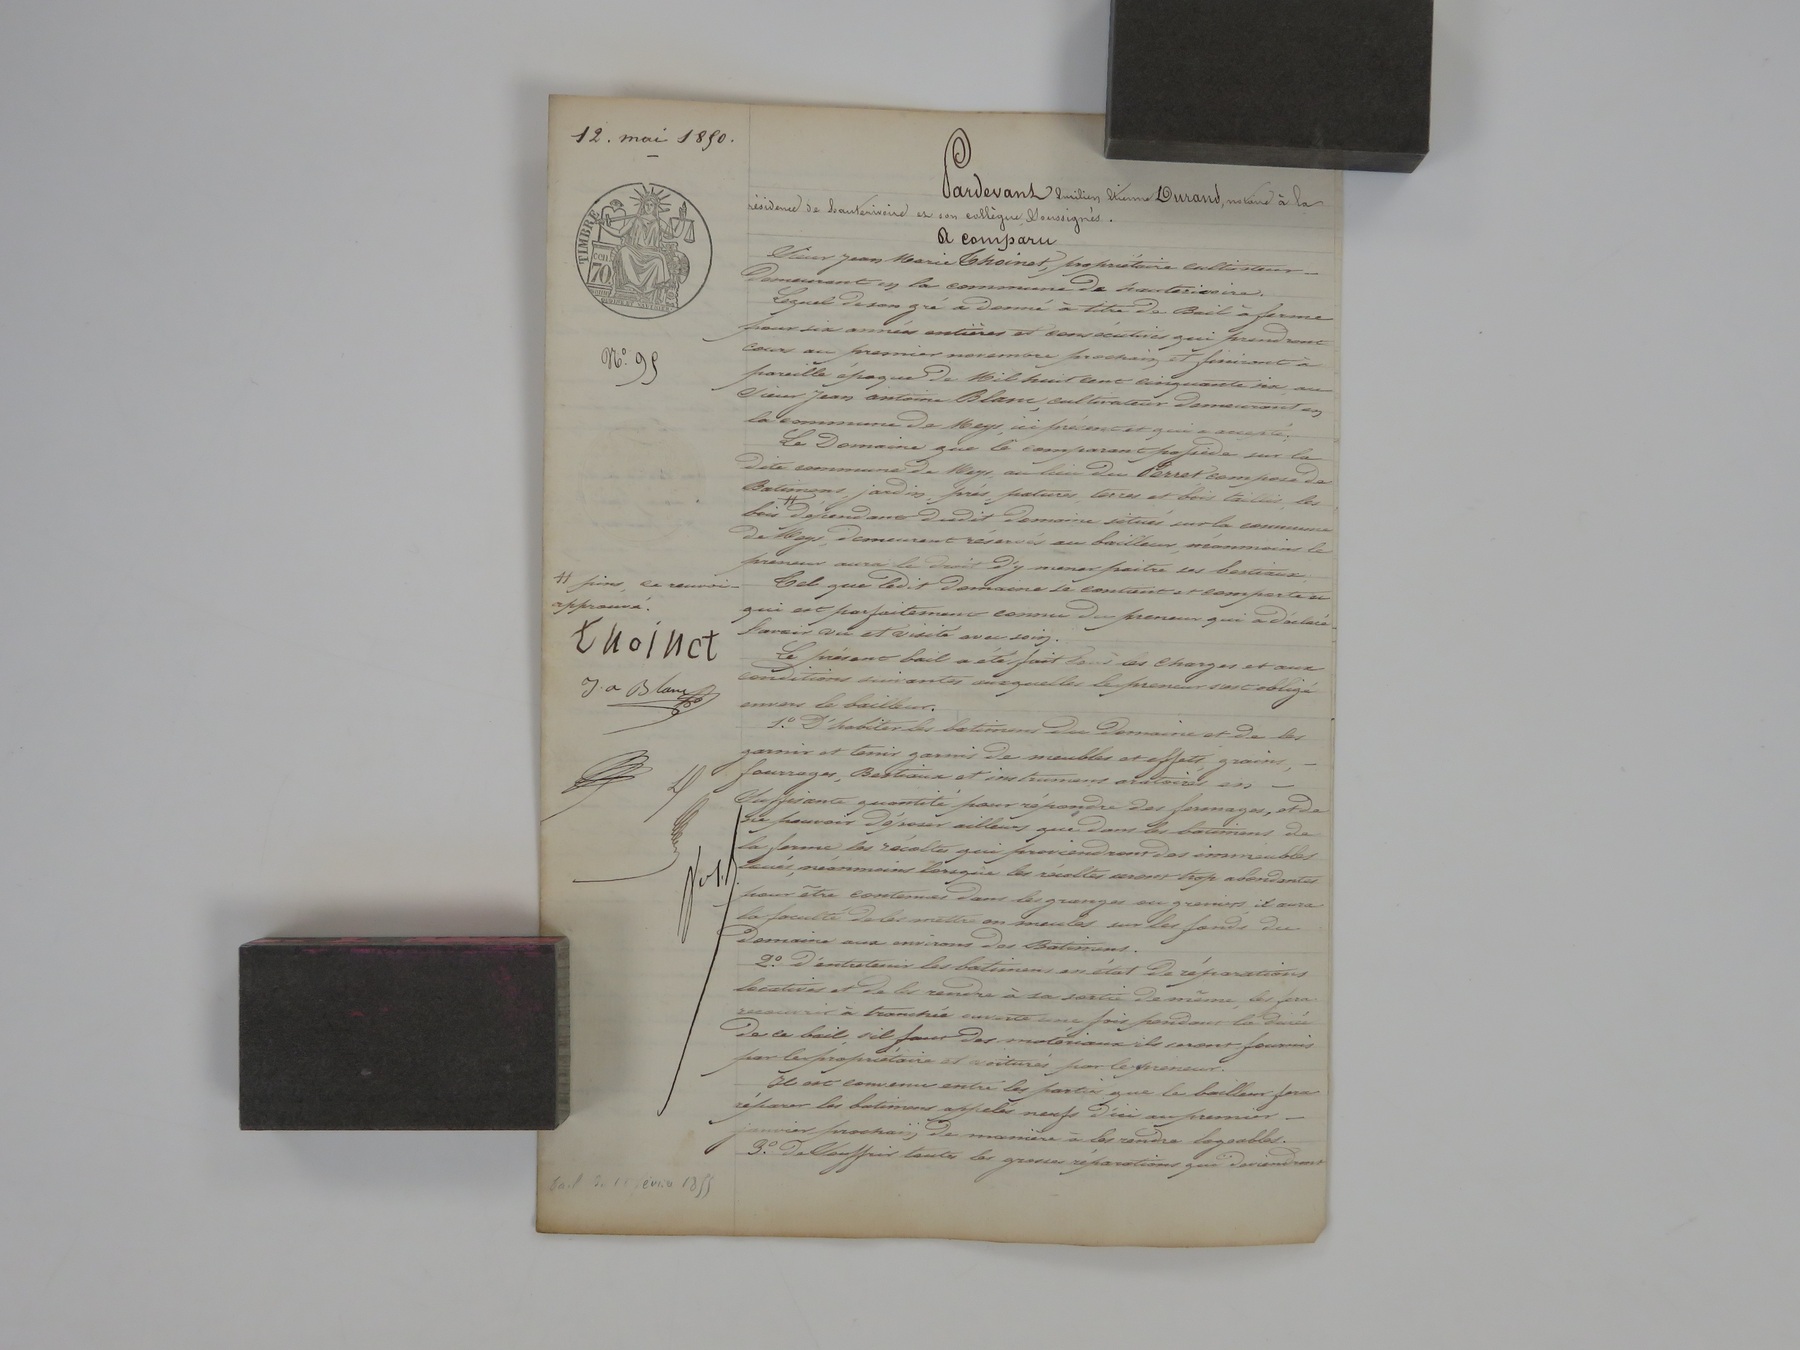 12. mai 1850.
TIMBRE
CEN.
70.
N.º 95
Pardevant Emilien Etienne Durand, notaire à la
résidence de hauterivoire et son collègue Soussignés.
A comparu
Sieur Jean Marie Thoinet, propriétaire cultivateur
Demeurant en la commune de hauterivoire.
Lequel de son gré a donné à titre de Bail à ferme
pour six années entières et consécutives qui prendront
cours au premier novembre prochain et finiront à
pareille époque de Mil huit cent cinquante six, au
Sieur Jean antoine Blanc, cultivateur Demeurant en
la commune de Meys, ici présent et qui a accepté.
Le Domaine que le comparant possède sur la
dite commune de Meys, au lieu du Perret composé de
Batimens, jardin, prés, patures, terres et bois taillis, les
bois # dépendant dudit domaine situés sur la commune
de Meys, demeurent réservés au bailleur, néanmoins le
preneur aura le droit d'y mener paitre ses bestiaux
# pins, ce renvoi
approuvé.
Thoinet
J. a Blanc
Tel que ledit domaine se contient et comporte et
qui est parfaitement connu du preneur qui a déclaré
l'avoir vu et visité avec soin.
Le présent bail a été fait sous les charges et aux
conditions suivantes auxquelles le preneur s'est obligé
envers le bailleur.
1.º D'habiter les batimens du Domaine et de les
garnir et tenir garnis de meubles et effets, grains,
fourrages, Bestiaux et instrumens aratoires en
Suffisante quantité pour répondre des fermages, et de
ne pouvoir déposer ailleurs que dans les batimens de
la ferme les récoltes qui proviendront des immeubles
loués, néanmoins lorsque les récoltes seront trop abondantes
pour être contenues dans les granges ou greniers il aura
la faculté de les mettre en meules sur les fonds du
Domaine aux environs des Batimens.
2.º d'entretenir les batimens en état de réparations
locatives et de les rendre à sa sortie de même, les fera
recouvrir à tranchée ouverte une fois pendant la durée
de ce bail, s'il faut des matériaux ils seront fournis
par le propriétaire et voiturés par le preneur.
Il est convenu entre les parties que le bailleur fera
réparer les batimens appelés neufs d'ici au premier
janvier prochain, de manière à les rendre logeables.
3.º de Souffrir toutes les grosses réparations qui deviendront
Bail du 11 février 1855